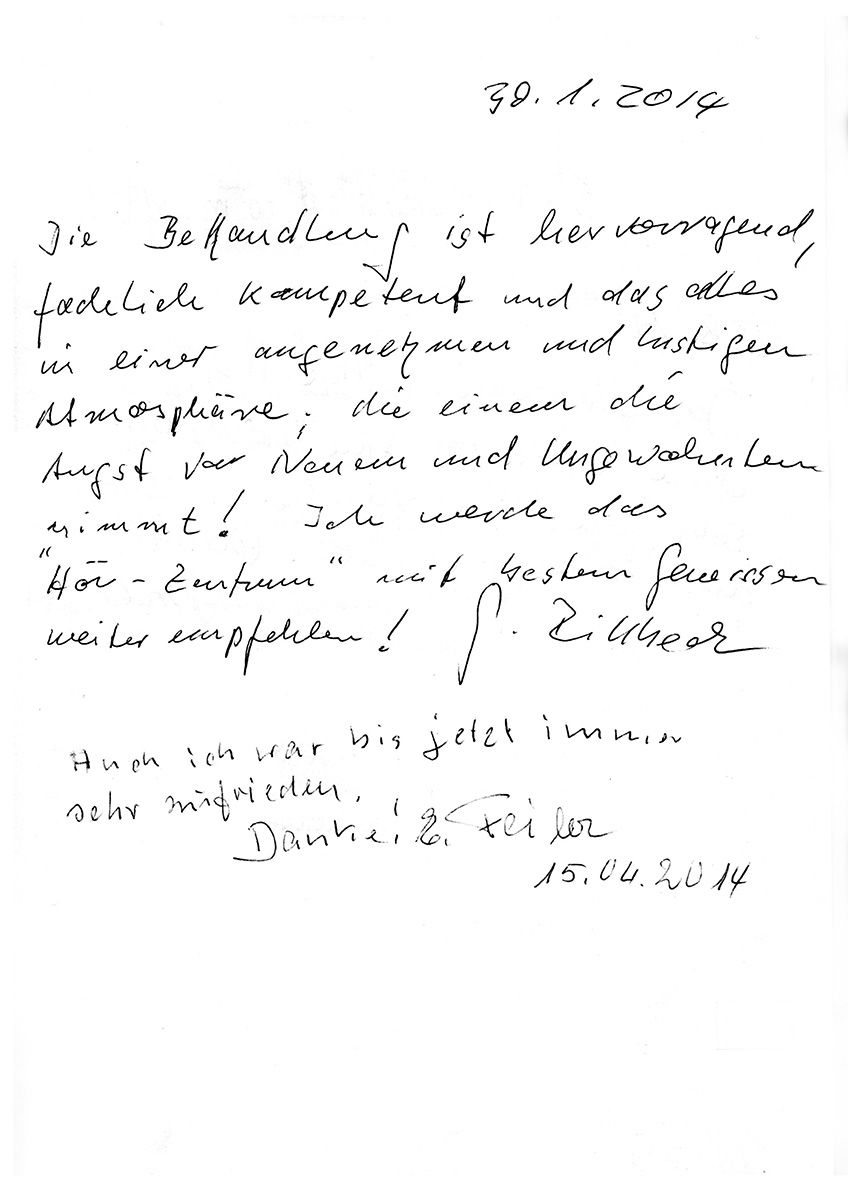 30.1.2014
Die Behandlung ist hervorragend,
fachlich kompetent und das alles
in einer angenehmen und lustigen
Atmosphäre, die einem die
Angst vor Neuem und Ungewohntem
nimmt! Ich werde das
"Hör-Zentrum" mit bestem Gewissen
weiter empfehlen!
Auch ich war bis jetzt immer
sehr zufrieden.
Danke! E. Feiler
15.04.2014